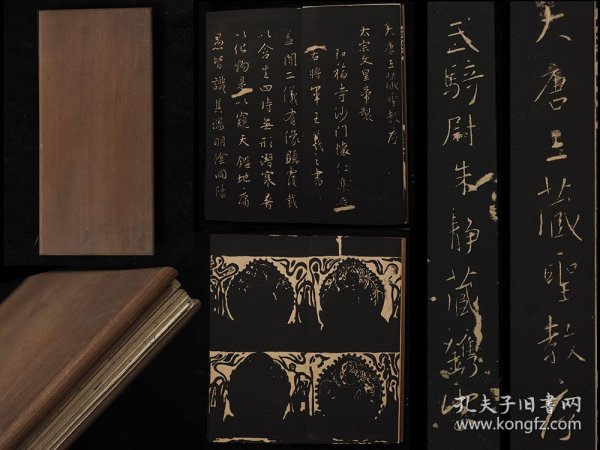 大唐三藏聖教序
太宗文皇帝製
弘福寺沙門懷仁集
右將軍王羲之書
蓋聞二儀有像顯覆載
以含生四時無形潛寒暑
以化物是以窺天鑑地庸
愚皆識其端明陰洞陽
武騎尉朱靜藏鐫字
大唐三藏聖教序
孔夫子旧书网
www.kongfz.com